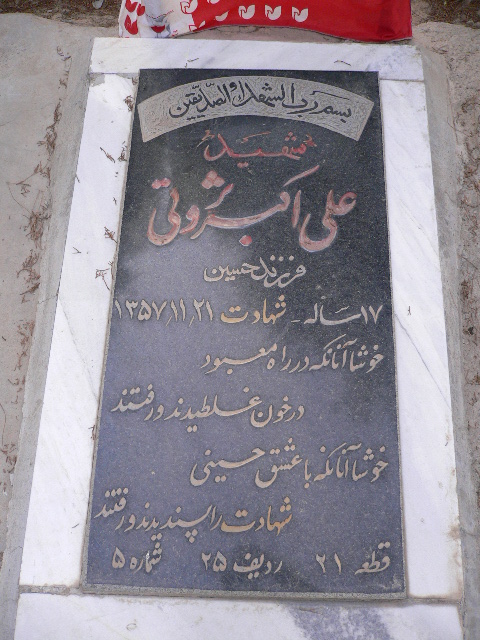 بسم رب الشهداء والصدیقین
شهید
علی اکبر ثروتی
فرزند حسین
۱۷ ساله - شهادت ۱۳۵۷٫۱۱٫۲۱
خوشا آنانکه در راه معبود
در خون غلطیدند و رفتند
خوشا آنانکه با عشق حسینی
شهادت را پسندیدند و رفتند
قطعه ۲۱ ردیف ۲۵ شماره ۵